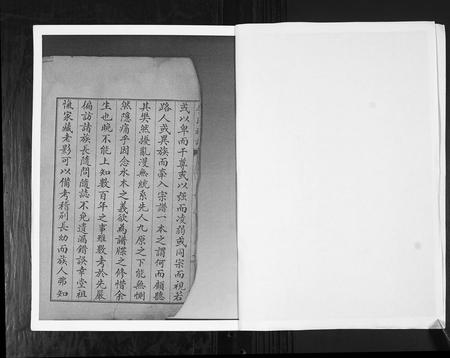 或以卑而干尊或以强而凌弱或同宗而視若
路人或異族而牽入宗譜一本之謂何而顧聽
其樊然擾亂漫無統系先人九原之下能無惻
然隱痛乎因念水木之義欲為譜牒之修惜余
生也晚不能上知數百年之事雖數考於先嚴
偏訪諸族長隨問隨誌不免遺漏錯誤幸堂祖
懷家藏老影可以備考稽列長幼而族人弗知